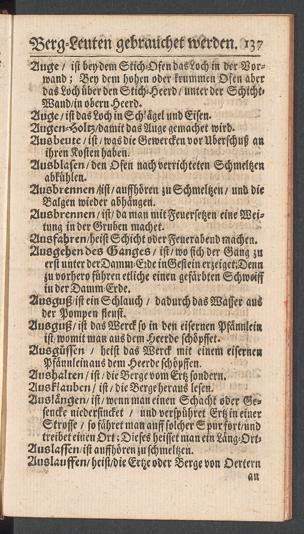 Berg-Leuten gebrauchet werden. 137
Auge / ist bey dem Stich-Ofen das Loch in der Vor-
wand; Bey dem hohen oder krummen Ofen aber
das Loch über den Stich-Heerd / unter der Schicht-
Wand / in obern Heerd.
Auge / ist das Loch in Schlägel und Eisen.
Augen-Holtz / damit das Auge gemachet wird.
Ausbeute / ist / was die Gewercken vor Uberschuß an
ihren Kosten haben.
Ausblasen / den Ofen nach verrichteten Schmeltzen
abkühlen.
Ausbrennen / ist / auffhören zu Schmeltzen / und die
Balgen wieder abhängen.
Ausbrennen / ist / da man mit Feuersetzen eine Wei-
tung in der Gruben machet.
Ausfahren / heist Schicht oder Feuerabend machen.
Ausgehen des Ganges / ist / wo sich der Gang zu
erst unter der Damm-Erde in Gestein erzeiget; Denn
zu vorhers führen etliche einen gefärbten Schweiff
in der Damm-Erde.
Ausguß / ist ein Schlauch / dadurch das Wasser aus
der Pompen fleust.
Ausguß / ist das Werck so in den eisernen Pfännlein
ist / womit man aus dem Heerde schöpffet.
Ausgüssen / heist das Werck mit einem eisernen
Pfännlein aus dem Heerde schöpffen.
Aushalten / ist / die Berge vom Ertz sondern.
Ausklauben / ist / die Berge heraus lesen.
Auslängen / ist / wenn man einen Schacht oder Ge-
sencke niedersincket / und verspühret Ertz in einer
Strosse / so fähret man auff solcher Spur fort / und
treibet einen Ort; Dieses heisset man ein Läng-Ort.
Auslassen / ist auffhören zu schmeltzen.
Auslauffen / heist / die Ertze oder Berge von Oertern
an